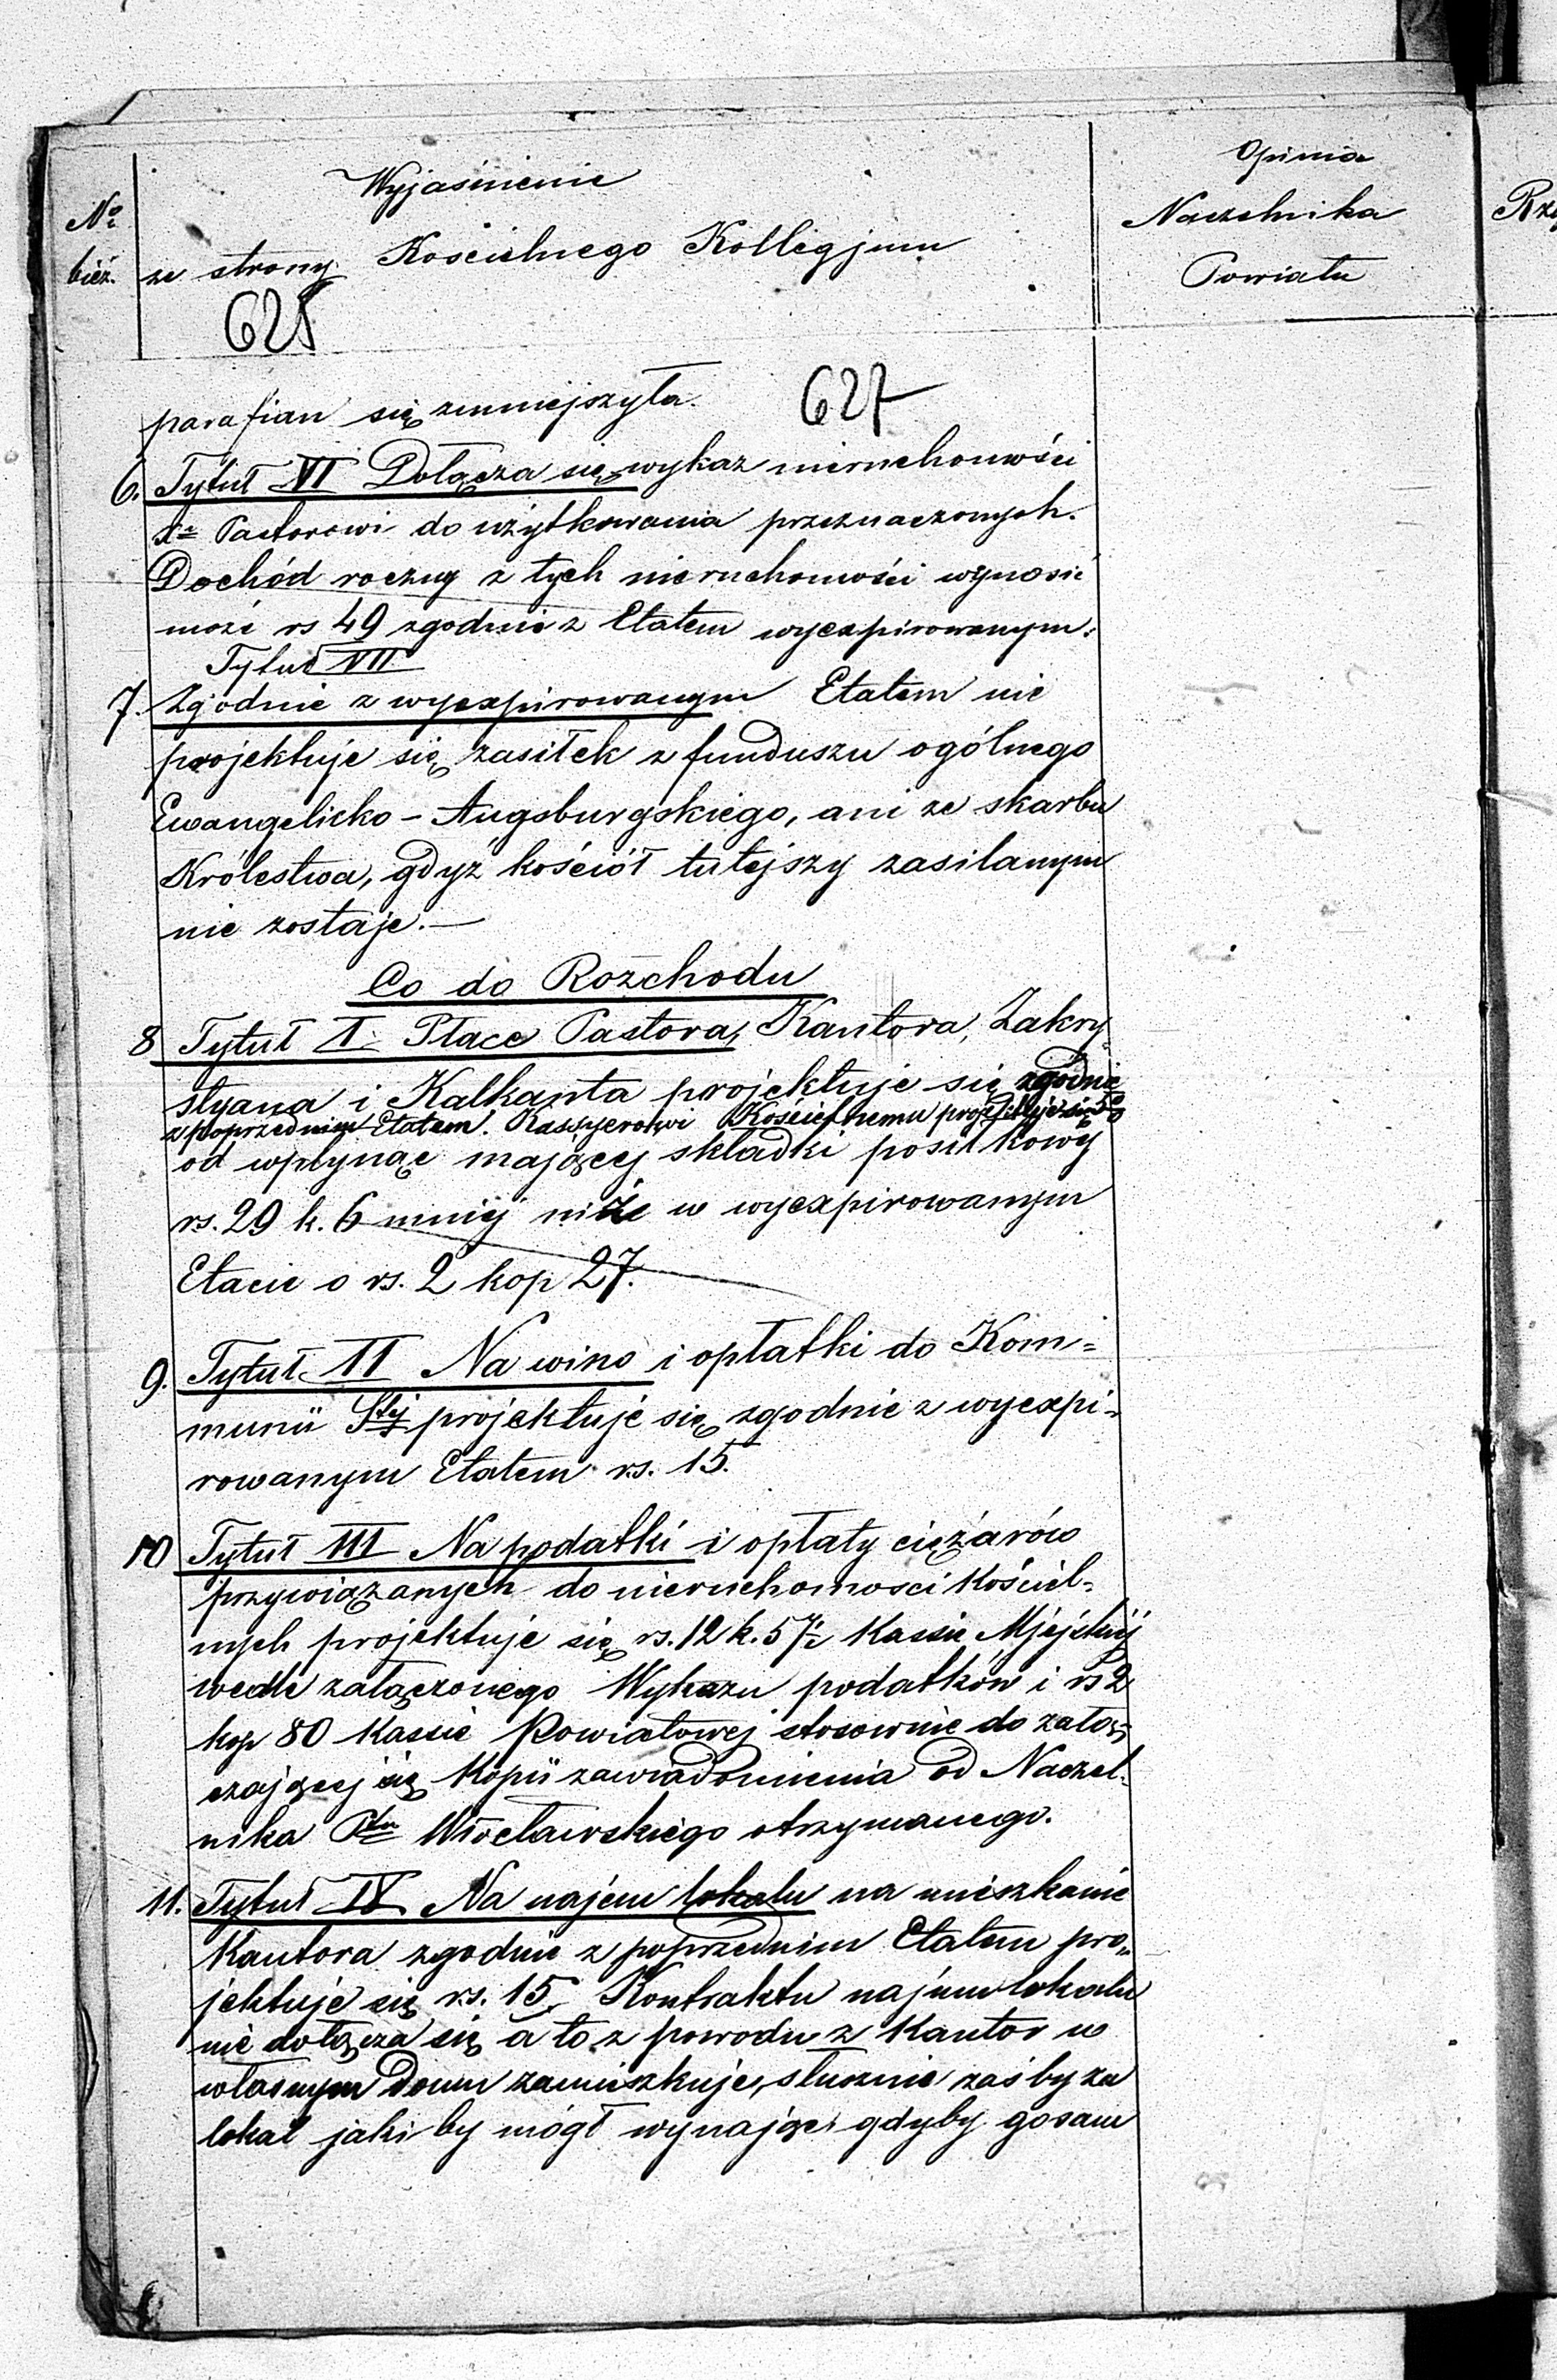 No
bież.
Wyjaśnienie
ze strony Kościelnego Kollegjum
Opinia
Naczelnika
Powiatu
625
627
parafian się zmniejszyła.
6. Tytuł VI Dołącza się wykaz nieruchomości
Xu Pastorowi do użytkowania przeznaczonych.
Dochód roczny z tych nieruchomości wynosić
może rs 49 zgodnie z Etatem wyexpirowanym.
Tytuł VII
7. Zgodnie z wyexpirowanym Etatem nie
projektuje się zasiłek z funduszu ogólnego
Ewangelicko-Augsburgskiego, ani ze skarbu
Królestwa, gdyż kościół tutejszy zasilanym
nie zostaje.—
Co do Rozchodu
8 Tytuł I. Płace Pastora, Kantora, Zakry-
styana i Kalkanta projektuje się zgodnie
z poprzednim Etatem. Kassyerowi Kościelnemu projektuje się 5%
od wpłynąc mającej składki posiłkowej
rs. 29 k. 6 mniej niże w wyexpirowanym
Etacie o rs. 2 kop 27.
9. Tytuł II Na wino i opłatki do Kom=
munii Stej projektuje się zgodnie z wyexpi-
rowanym Etatem rs. 15.
10 Tytuł III Na podatki i opłaty ciężarów
przywiązanych do nieruchomosci Kościel=
nych projektuje się rs. 12 k. 57½ Kassie Mjejskiej
wedle załączonego Wykazu podatków i rs 2
kop 80 Kassie Powiatowej stosownie do załą=
czającej się Kopii zawiadomienia od Naczel-
nika Ptu Włocławskiego otrzymanego.
11. Tytuł IV Na najem lokalu na mieszkanie
Kantora zgodnie z poprzednim Etatem pro=
jektuje się rs. 15. Kontraktu najmu lokalu
nie dołącza się a to z powodu z Kantor w
własnym domu zamieszkuje, słusznie zaś by za
lokal jaki by mógł wynająć gdyby go sam